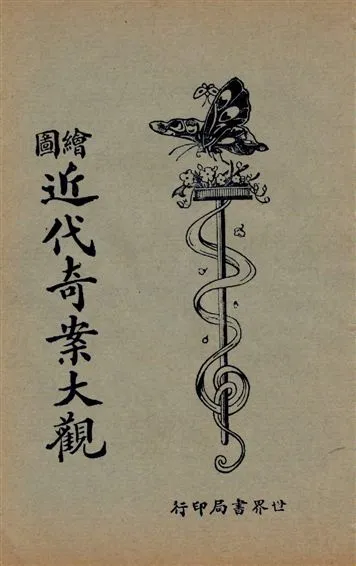 繪圖
近代奇案大觀
世界書局印行